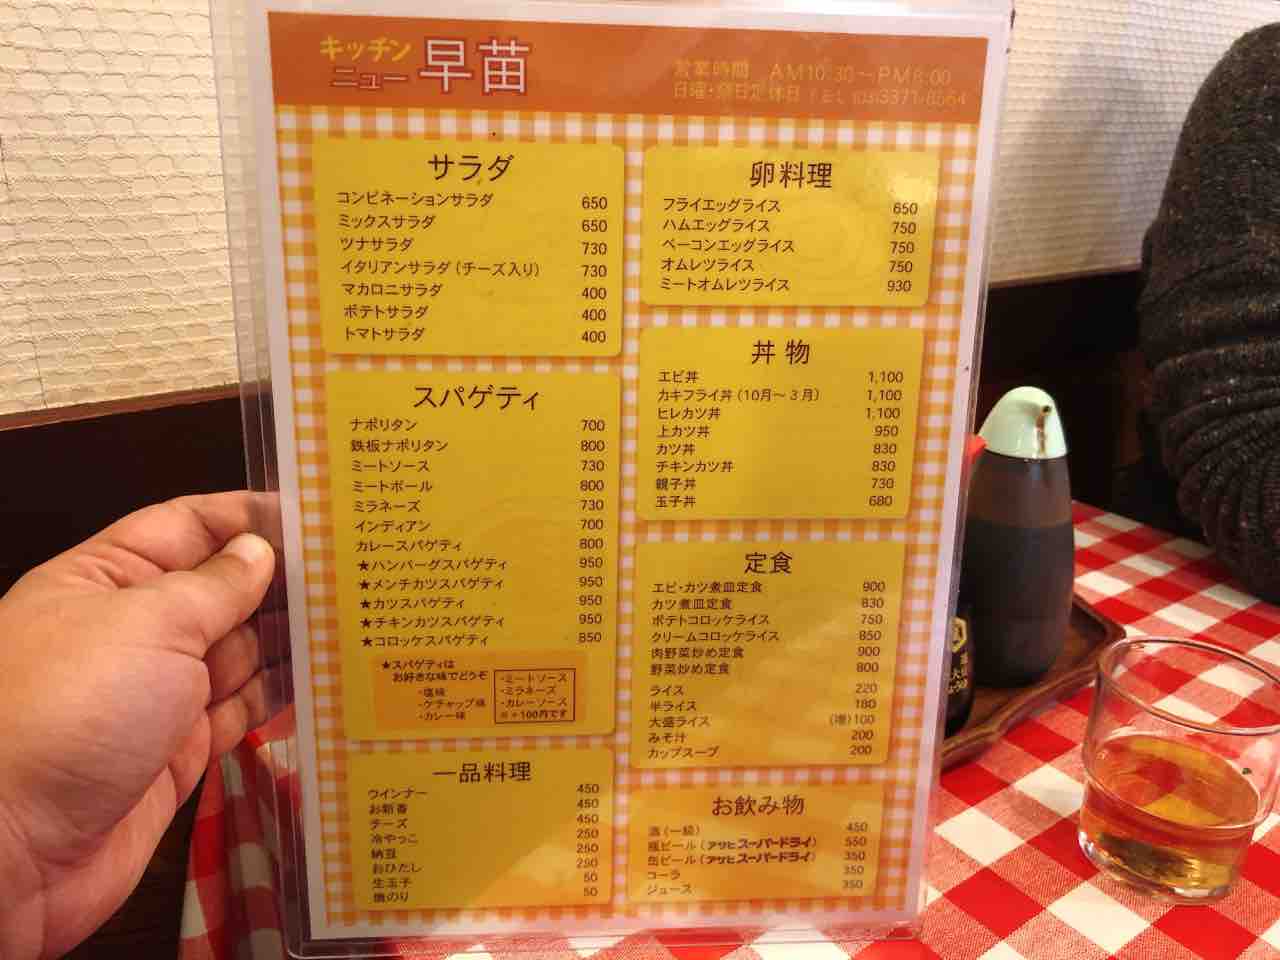 キッチン
ニュー 早苗
営業時間 AM10:30〜PM8:00
日曜・祭日定休日 TEL (03)3371-8564
サラダ
コンビネーションサラダ 650
ミックスサラダ 650
ツナサラダ 730
イタリアンサラダ(チーズ入り) 730
マカロニサラダ 400
ポテトサラダ 400
トマトサラダ 400
スパゲティ
ナポリタン 700
鉄板ナポリタン 800
ミートソース 730
ミートボール 800
ミラネーズ 730
インディアン 700
カレースパゲティ 800
★ハンバーグスパゲティ 950
★メンチカツスパゲティ 950
★カツスパゲティ 950
★チキンカツスパゲティ 950
★コロッケスパゲティ 850
★スパゲティは
お好きな味でどうぞ
・塩味
・ケチャップ味
・カレー味
・ミートソース
・ミラネーズ
・カレーソース
※+100円です
一品料理
ウインナー 450
お新香 450
チーズ 450
冷やっこ 250
納豆 250
おひたし 250
生玉子 50
焼のり 50
卵料理
フライエッグライス 650
ハムエッグライス 750
ベーコンエッグライス 750
オムレツライス 750
ミートオムレツライス 930
丼物
エビ丼 1,100
カキフライ丼(10月〜3月) 1,100
ヒレカツ丼 1,100
上カツ丼 950
カツ丼 830
チキンカツ丼 830
親子丼 730
玉子丼 680
定食
エビ・カツ煮皿定食 900
カツ煮皿定食 830
ポテトコロッケライス 750
クリームコロッケライス 850
肉野菜炒め定食 900
野菜炒め定食 800
ライス 220
半ライス 180
大盛ライス (増)100
みそ汁 200
カップスープ 200
お飲み物
酒(一級) 450
瓶ビール(アサヒスーパードライ) 550
缶ビール(アサヒスーパードライ) 350
コーラ 350
ジュース 350